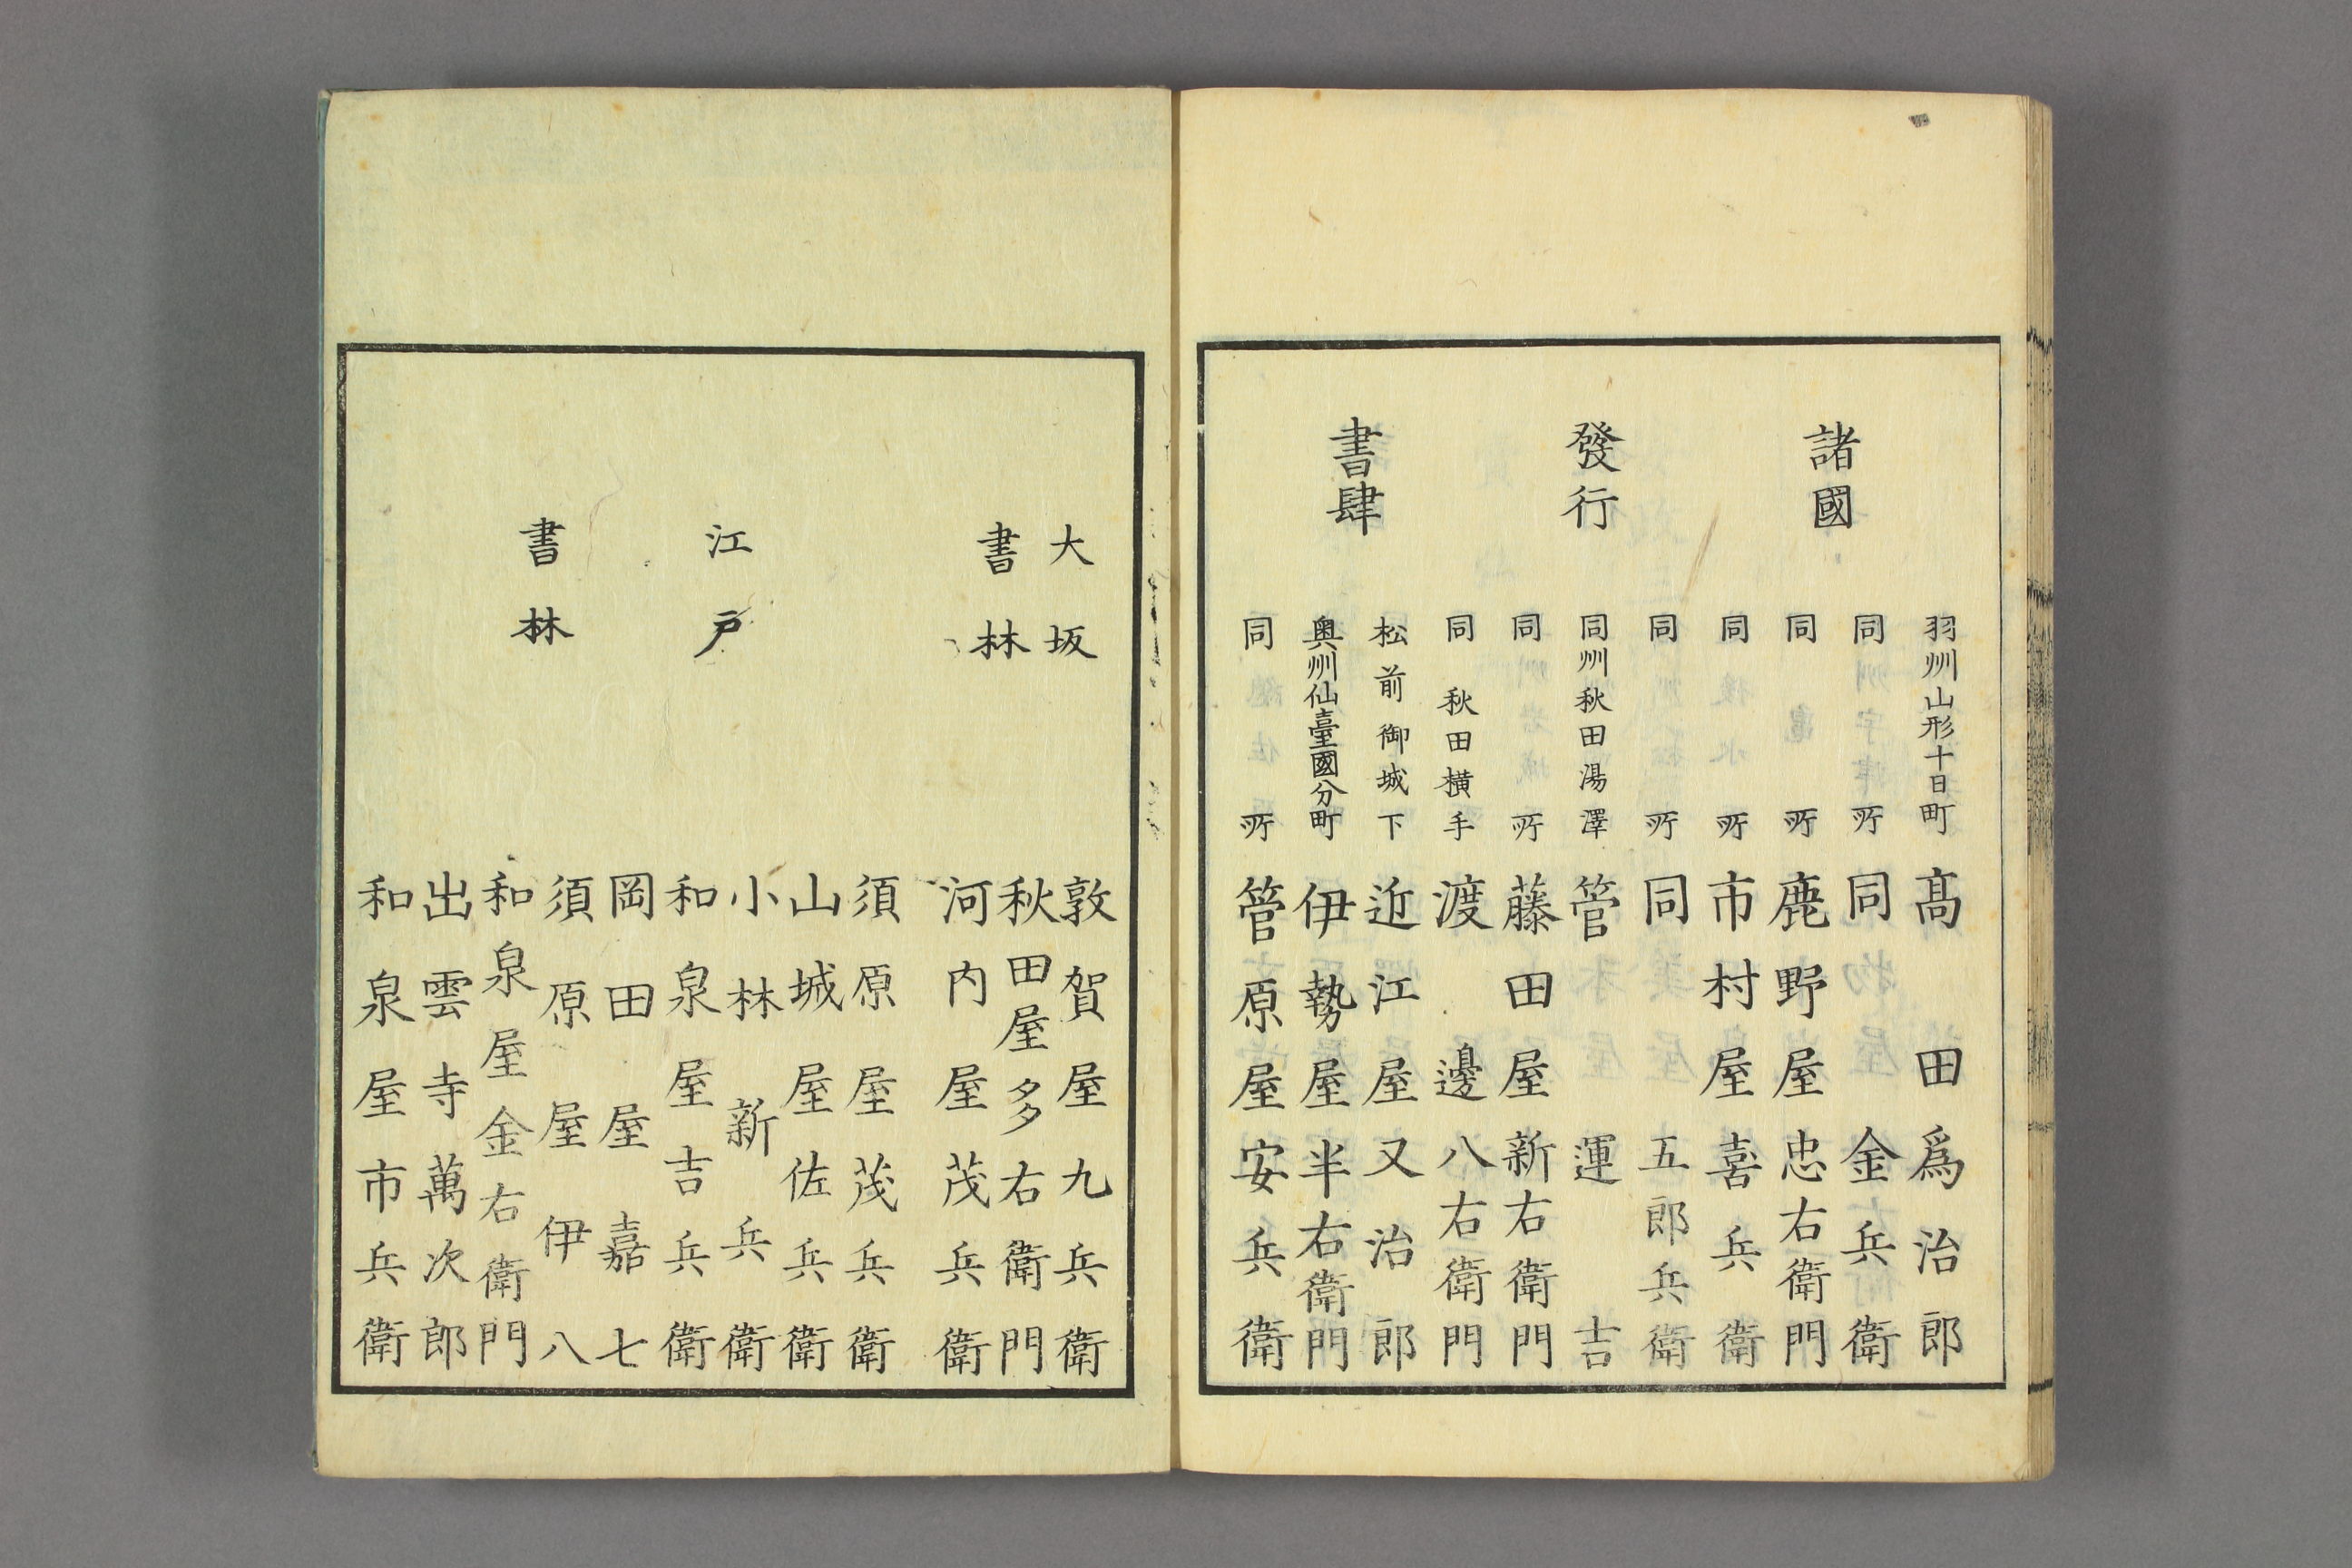 諸國
發行
書肆
羽州山形十日町 髙田爲治郎
同所 同金兵衛
同所 鹿野屋忠右衛門
同所 市村屋喜兵衛
同所 同五郎兵衛
同州秋田湯澤 管運吉
同所 藤田屋新右衛門
同秋田横手 渡邊八右衛門
松前御城下 近江屋又治郎
奥州仙臺國分町 伊勢屋半右衛門
同所 管原屋安兵衛
大坂
書林
敦賀屋九兵衛
秋田屋多右衛門
河内屋茂兵衛
江戸
書林
須原屋茂兵衛
山城屋佐兵衛
小林新兵衛
和泉屋吉兵衛
岡田屋嘉七
須原屋伊八
和泉屋金右衛門
出雲寺萬次郎
和泉屋市兵衛